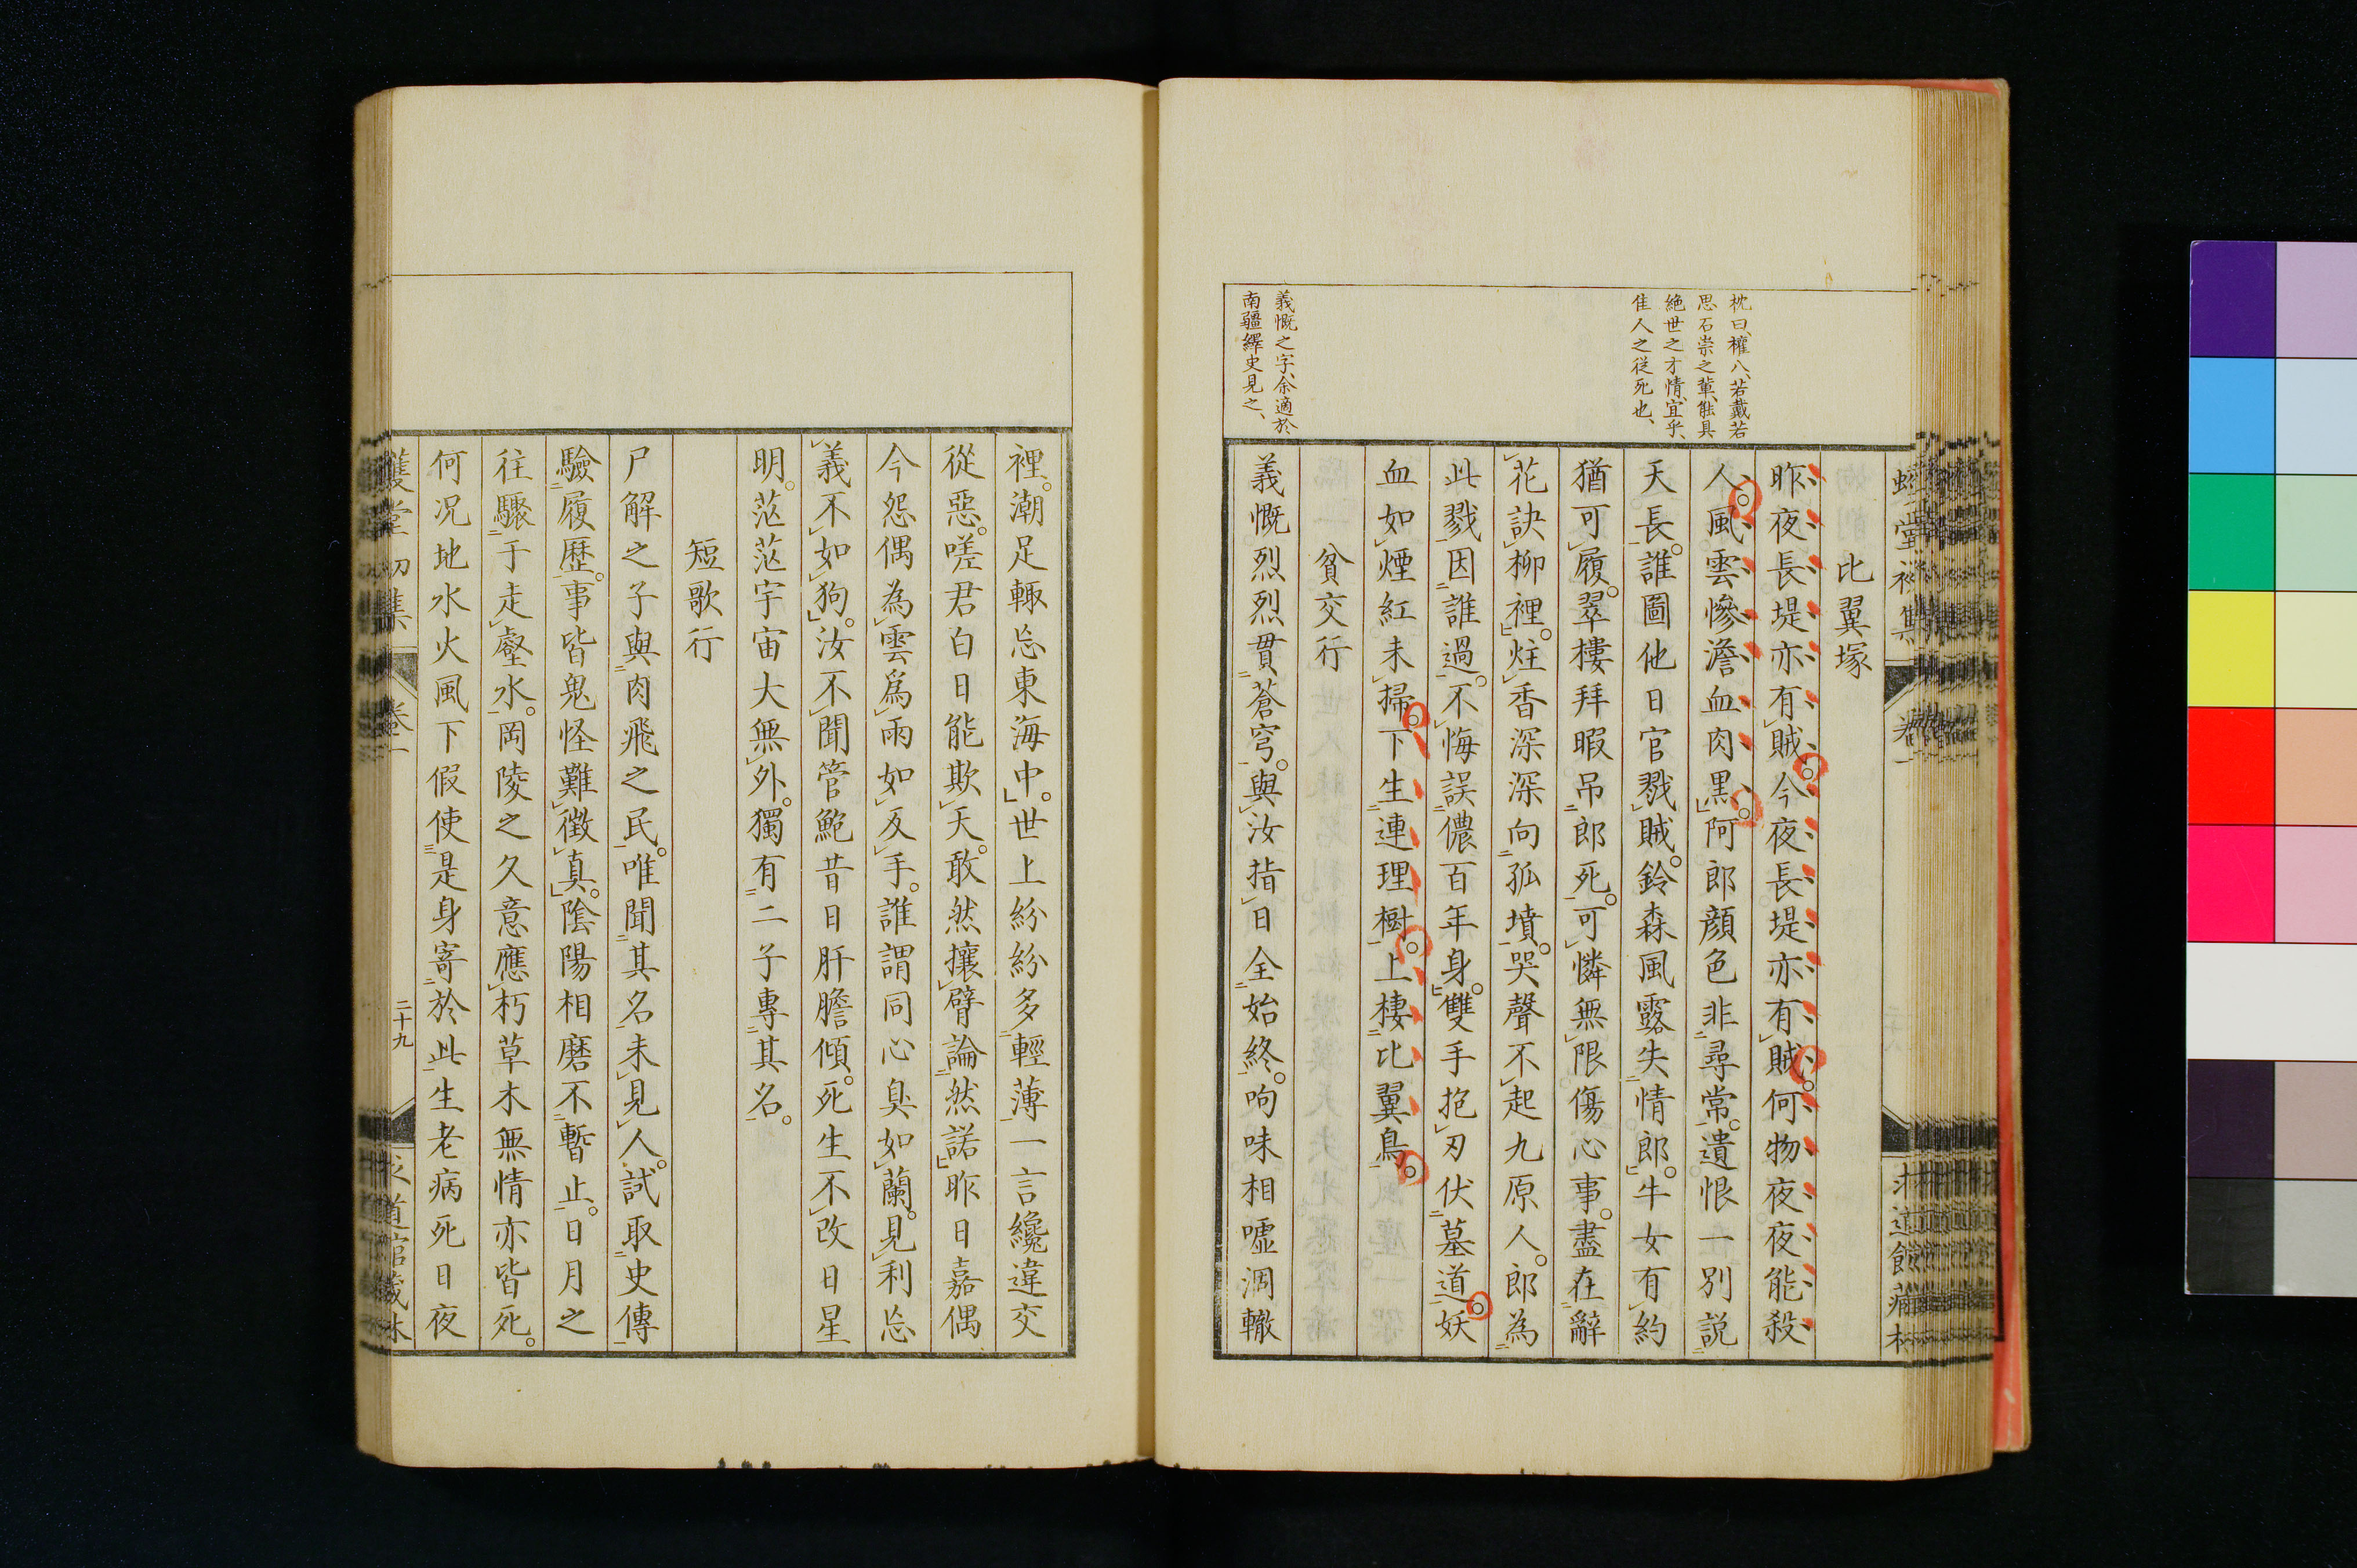 比翼塚
昨夜長堤亦有賊。今夜長堤亦有賊。何物夜夜能殺
人。風雲慘澹血肉黒。阿郎顔色非尋常。遺恨一別説
天長。誰圖他日官戮賊。鈴森風露失情郎。牛女有約
猶可履。翠樓拜暇吊郎死。可憐無限傷心事。盡在辭
花訣柳裡。炷香深深向孤墳。哭聲不起九原人。郎為
此戮因誰過。不悔誤儂百年身。雙手抱刃伏墓道。妖
血如煙紅未掃。下生連理樹。上棲比翼鳥。
貧交行
義慨烈烈貫蒼穹。與汝指日全始終。呴味相嘘涸轍
枕曰、權八、若戴若
思石崇之輩、能具
絶世之才情、宜乎、
佳人之従死也、
義慨之字、余適於
南疆繹史見之、
裡。潮足輙忘東海中。世上紛紛多輕薄一言纔違交
從惡。嗟君白日能欺天。敢然攘臂論然諾昨日嘉偶
今怨偶為雲爲雨如反手。誰謂同心臭如蘭。見利忘
義不如狗。汝不聞管鮑昔日肝膽傾。死生不改日星
明。茫茫宇宙大無外。獨有二子專其名。
短歌行
尸解之子與肉飛之民。唯聞其名未見人。試取史傳
驗履歴。事皆鬼怪難徴真。陰陽相磨不暫止。日月之
往驟于走壑水。岡陵之久意應朽草木無情亦皆死。
何況地水火風下假使是身寄於此生老病死日夜
卷一
二十九